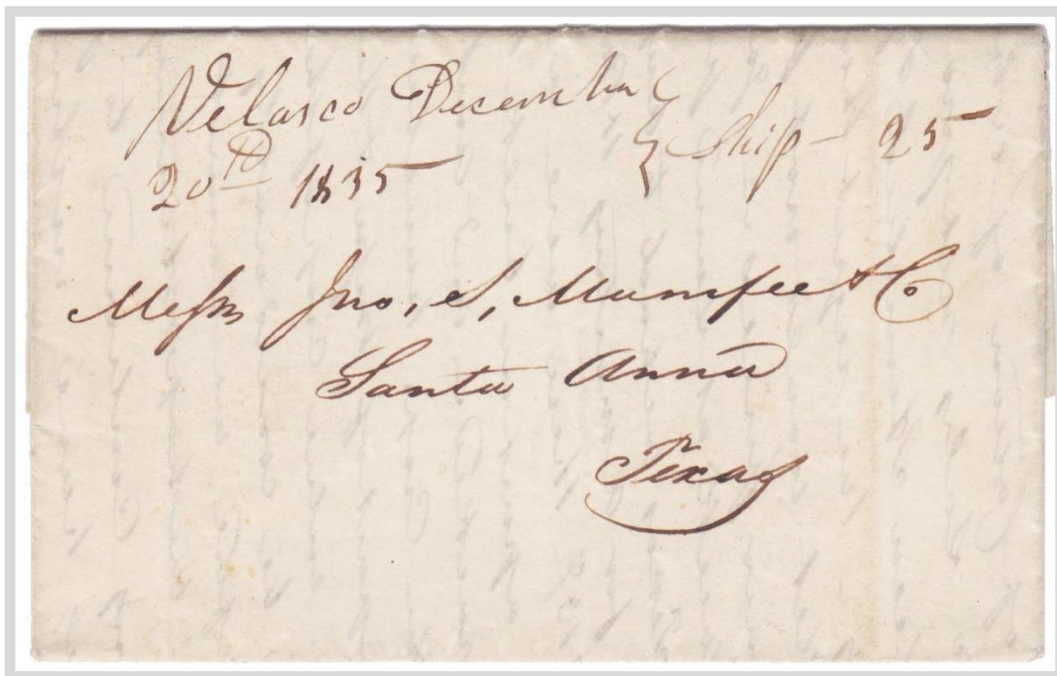 Velasco December } Ship - 25
20th 1835
Messrs Jno, S, Mumfee & Co
Santa Anna
Texas